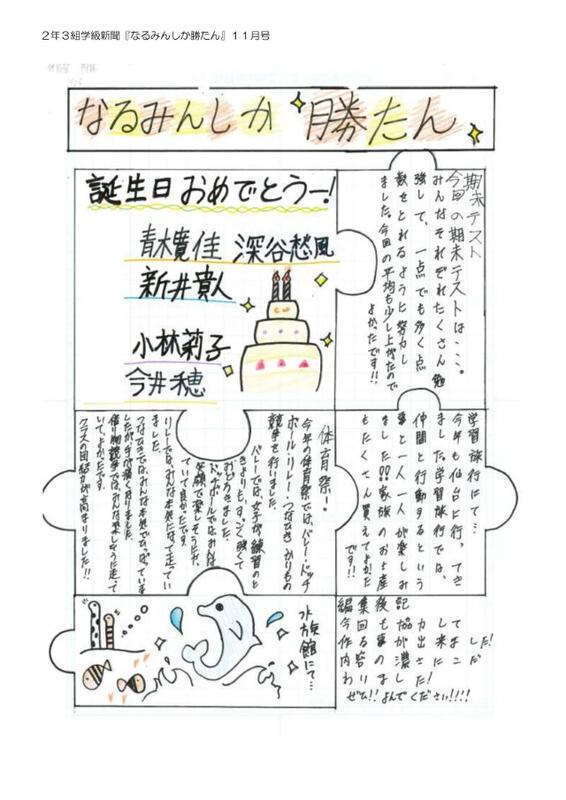 2年3組学級新聞『なるみんしか勝たん』11月号
なるみんしか勝たん
誕生日おめでとうー!
青木寛佳 深谷愁風
新井貴人
小林莉子
今井穂
期末テスト
今回の期末テストは、・・・。
みんなそれぞれたくさん勉
強して、一点でも多く点
数をとれるように努力し
ました。今回の平均も少し上がったので
よかったです!!
体育祭!
今年の体育祭では、バレー・ドッヂ
ボール・リレー・つなひき・かりもの
競争を行いました。
バレーでは、女子が練習のと
きよりも、すごく強くて
おどろきました。
ドッヂボールでは、みんな
笑顔で楽しそうにや
っていて良かったです。
リレーでは、みんな本気になって走ってい
ました。
つなひきでは、みんな本気でひっぱっていま
借り物競争では、みんな楽しそうに走って
いて、よかったです。
クラスの団結力が高まりました!!
学習旅行にて…
今年も仙台に行ってき
ました。学習旅行では、
仲間と行動するという
事と一人一人が楽しみ
ました!!家族のお土産
もたくさん買えてよかた
です!!
水族館にて…
編集後記
今回も協力して
作る事が出来ました!
内容の濃さにこだ
わりました!
ぜひ!!よんでください!!!!